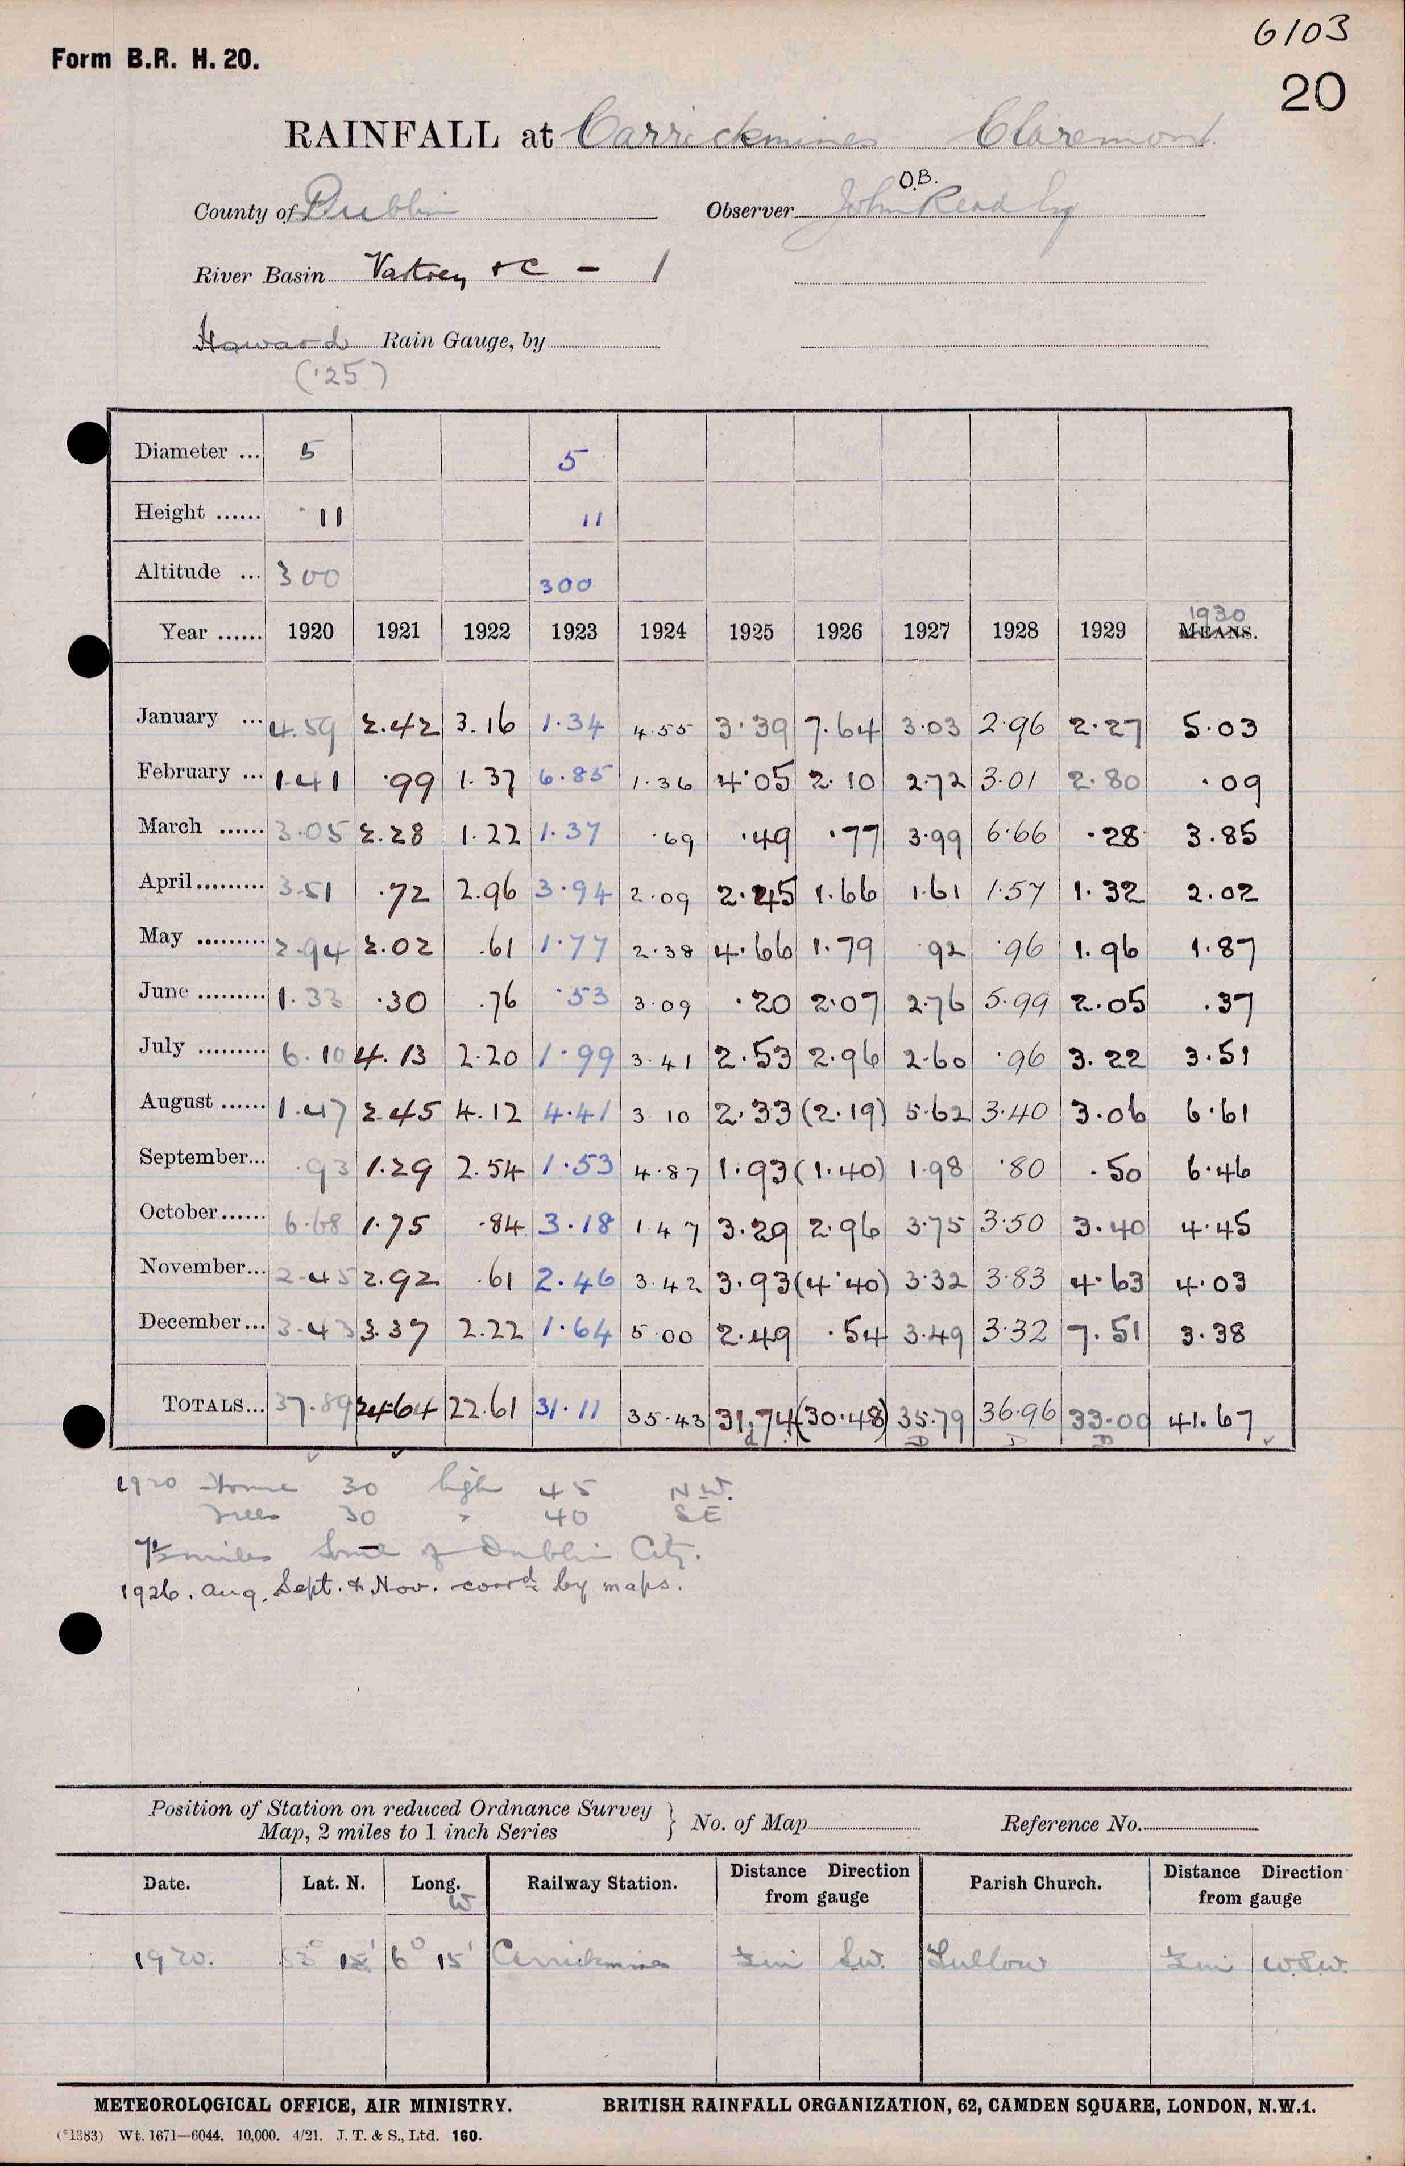 6103
Form B.R. H. 20.
20
RAINFALL at Carrickmines Claremont
O.B.
County of Dublin Observer John Read Esq
River Basin Vartrey &c - 1
Howard Rain Gauge, by
('25)
Diameter ... 5 5
Height ...... 11 11
Altitude ... 300 300
1930
Year ...... 1920 1921 1922 1923 1924 1925 1926 1927 1928 1929 MEANS.
January ... 4.59 2.42 3.16 1.34 4.55 3.39 7.64 3.03 2.96 2.27 5.03
February ... 1.41 .99 1.37 6.85 1.36 4.05 2.10 2.72 3.01 2.80 .09
March ...... 3.05 2.28 1.22 1.37 .69 .49 .77 3.99 6.66 .28 3.85
April......... 3.51 .72 2.96 3.94 2.09 2.45 1.66 1.61 1.57 1.32 2.02
May ......... 2.94 2.02 .61 1.77 2.38 4.66 1.79 .92 .96 1.96 1.87
June ......... 1.33 .30 .76 .53 3.09 .20 2.07 2.76 5.99 2.05 .37
July ......... 6.10 4.13 2.20 1.99 3.41 2.53 2.96 2.60 .96 3.22 3.51
August ...... 1.47 2.45 4.12 4.41 3 10 2.33 (2.19) 5.62 3.40 3.06 6.61
September... .93 1.29 2.54 1.53 4.87 1.93 (1.40) 1.98 .80 .50 6.46
October...... 6.68 1.75 .84 3.18 1 47 3.29 2.96 3.75 3.50 3.40 4.45
November... 2.45 2.92 .61 2.46 3.42 3.93 (4.40) 3.32 3.83 4.63 4.03
December... 3.43 3.37 2.22 1.64 5 00 2.49 .54 3.49 3.32 7.51 3.38
TOTALS... 37.89 24.64 22.61 31.11 35.43 31.74 (30.48) 35.79 36.96 33.00 41.67
1920 House 30 high 45 N.W.
Trees 30 " 40 SE
7½ miles South of Dublin City.
1926. Aug. Sept. & Nov. corrd. by maps.
Position of Station on reduced Ordnance Survey Map, 2 miles to 1 inch Series } No. of Map Reference No.
Date. Lat. N. Long. W Railway Station. Distance Direction from gauge Parish Church. Distance Direction from gauge
1920. 53° 15' 6° 15' Carrickmines ½ mi S.W. Tullow ½ mi W.S.W.
METEOROLOGICAL OFFICE, AIR MINISTRY. BRITISH RAINFALL ORGANIZATION, 62, CAMDEN SQUARE, LONDON, N.W.1.
(*1383) Wt. 1671—6044. 10,000. 4/21. J. T. & S., Ltd. 160.